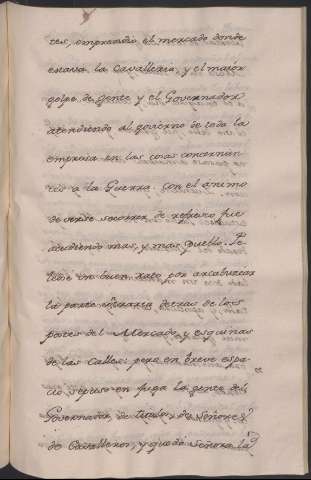 tes, emprendio el mercado donde
estava la Cavalleria y el maior
golpe de gente y el Governador
atendiendo al govierno de toda la
empresa en las cosas concernien
tes a la Guerra. con el animo
de verse socorrer de refresco fue
acudiendo mas, y mas Pueblo. Pe
leose un buen rato por arcabucear
la parte contraria detras de los
postes del Mercado, y esquinas
de las Calles; pero en breve espa
cio se puso en fuga la gente del
Governador, de titulos, de Señores y
de Cavalleros, y quedó señora la